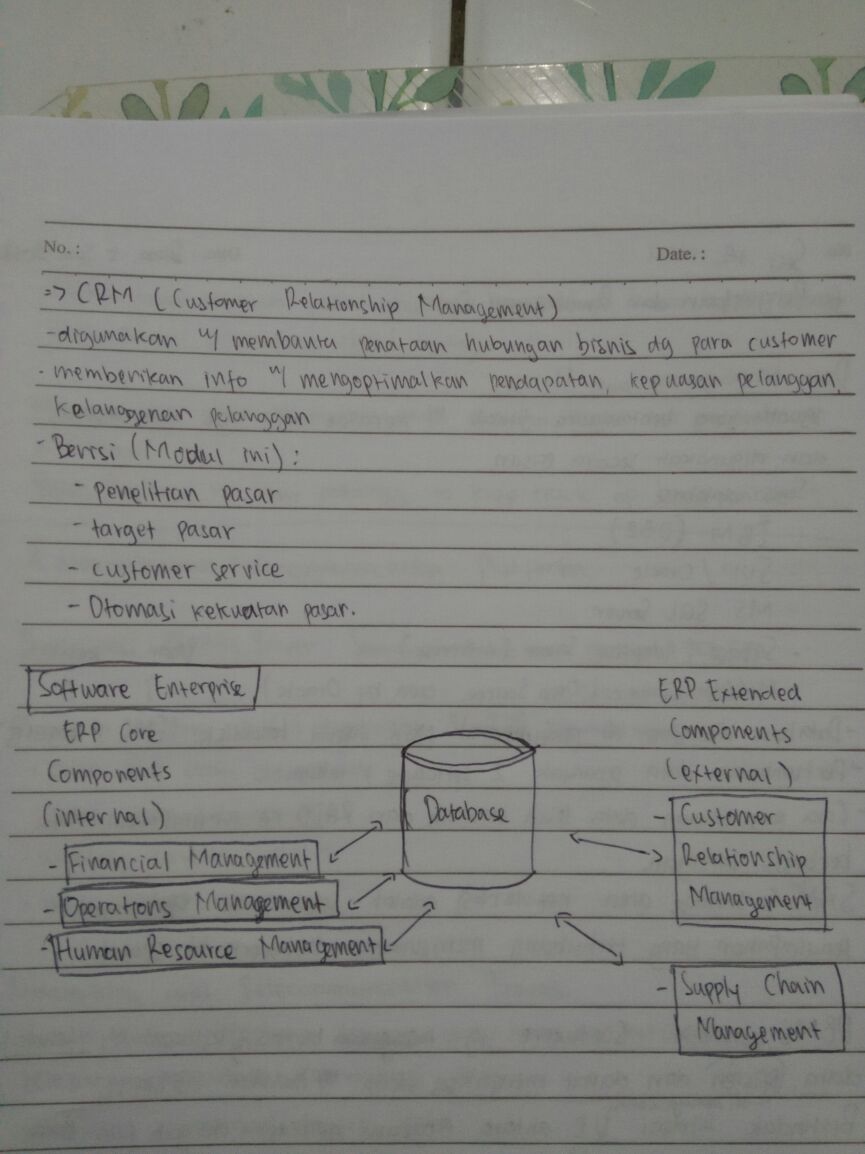 No. :
Date. :
=> CRM (Customer Relationship Management)
- digunakan u/ membantu penataan hubungan bisnis dg para customer
- memberikan info u/ mengoptimalkan pendapatan, kepuasan pelanggan,
kelanggenan pelanggan
- Berisi (Modul ini) :
- penelitian pasar
- target pasar
- customer service
- Otomasi kekuatan pasar.
Software Enterprise
ERP Core
Components
(internal)
- Financial Management
- Operations Management
- Human Resource Management
Database
ERP Extended
Components
(external)
- Customer
Relationship
Management
- Supply Chain
Management